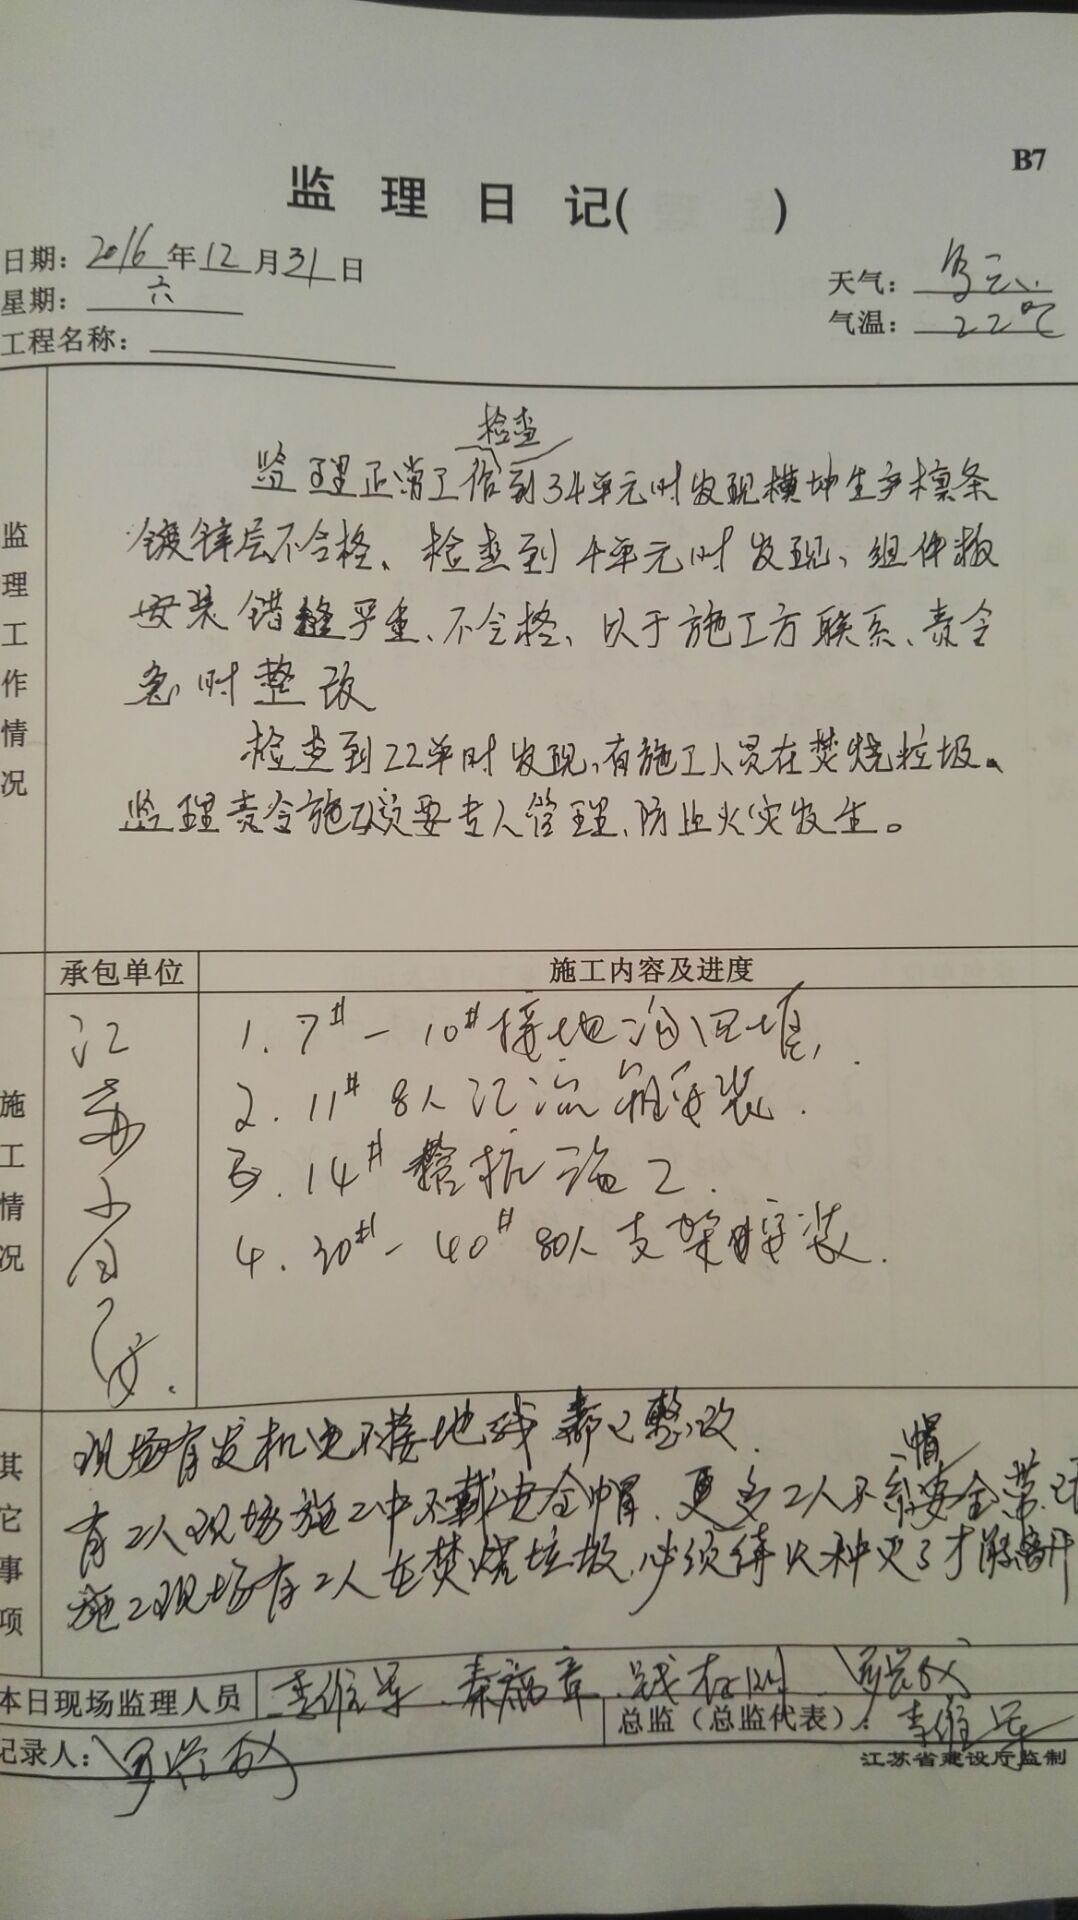 B7
监 理 日 记( )
日期: 2016 年 12 月 31 日
天气: 多云
星期: 六
气温: 22℃
工程名称:
监理工作情况
检查
监理正常工作到34单元时发现模坤生产檩条
镀锌层不合格、检查到4单元时发现、组件板
安装错缝严重、不合格、以于施工方联系、责令
急时整改
检查到22单时发现,有施工人员在焚烧垃圾、
监理责令施工员要专人管理、防止火灾发生。
承包单位
施工内容及进度
施工情况
江苏
1. 7# - 10# 接地沟回填.
2. 11# 8人汇流箱安装.
3. 14# 施工.
4. 30# - 40# 80人支架安装.
其它事项
现场有发机电不接地线 都已整改.
帽
有工人现场施工中不戴安全帽. 更多工人不系安全带.
施工现场有工人在焚烧垃圾,必须待火种灭了才离开
本日现场监理人员 李维军
总监(总监代表): 李维军
记录人:
江苏省建设厅监制